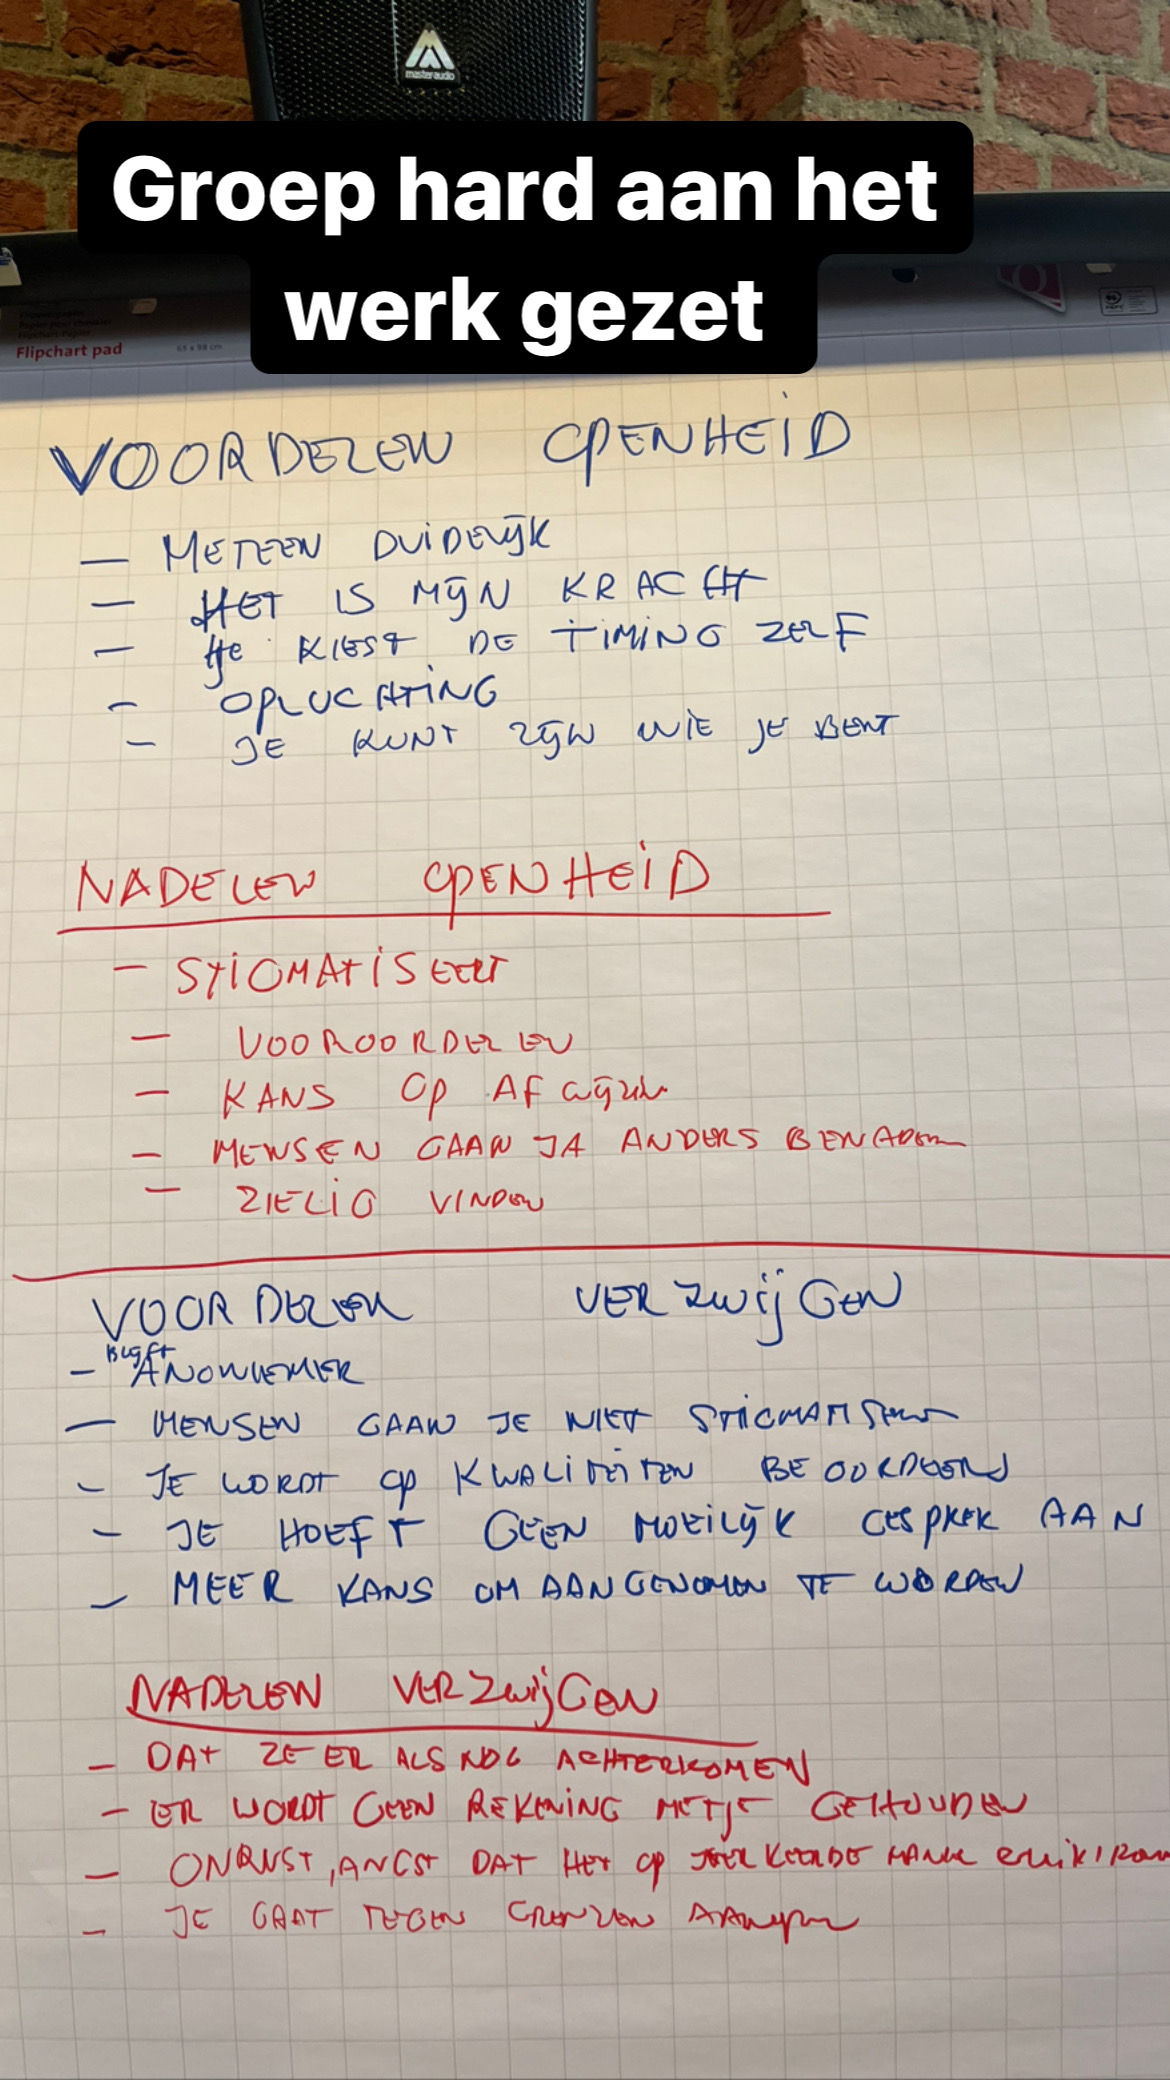 master audio
Groep hard aan het
werk gezet
Flipchart pad
65 x 98 cm
VOORDELEN OPENHEID
- METEEN DUIDELIJK
- HET IS MIJN KRACHT
- Je KIEST DE TIMING ZELF
- OPLUCHTING
- JE KUNT ZIJN WIE JE BENT
NADELEN OPENHEID
- STIGMATISEERT
- VOOROORDELEN
- KANS OP AFWIJZEN
- MENSEN GAAN JA ANDERS BENADEREN
- ZIELIG VINDEN
VOORDELEN VERZWIJGEN
- BLIJFT ANONIEMER
- MENSEN GAAN JE NIET STIGMATISEREN
- JE WORDT OP KWALITEITEN BEOORDEELD
- JE HOEFT GEEN MOEILIJK GESPREK AAN
- MEER KANS OM AANGENOMEN TE WORDEN
NADELEN VERZWIJGEN
- DAT ZE ER ALSNOG ACHTERKOMEN
- ER WORDT GEEN REKENING MET JE GEHOUDEN
- ONRUST, ANGST DAT HET OP VERKEERDE
- JE GAAT TEGEN GRENZEN